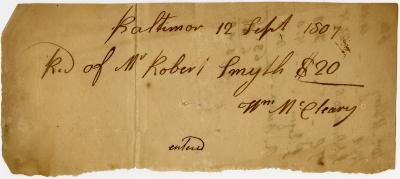 Baltimor 12 Sept 1807
Recd of Mr Robert Smyth $20
Wm McCleary
entered